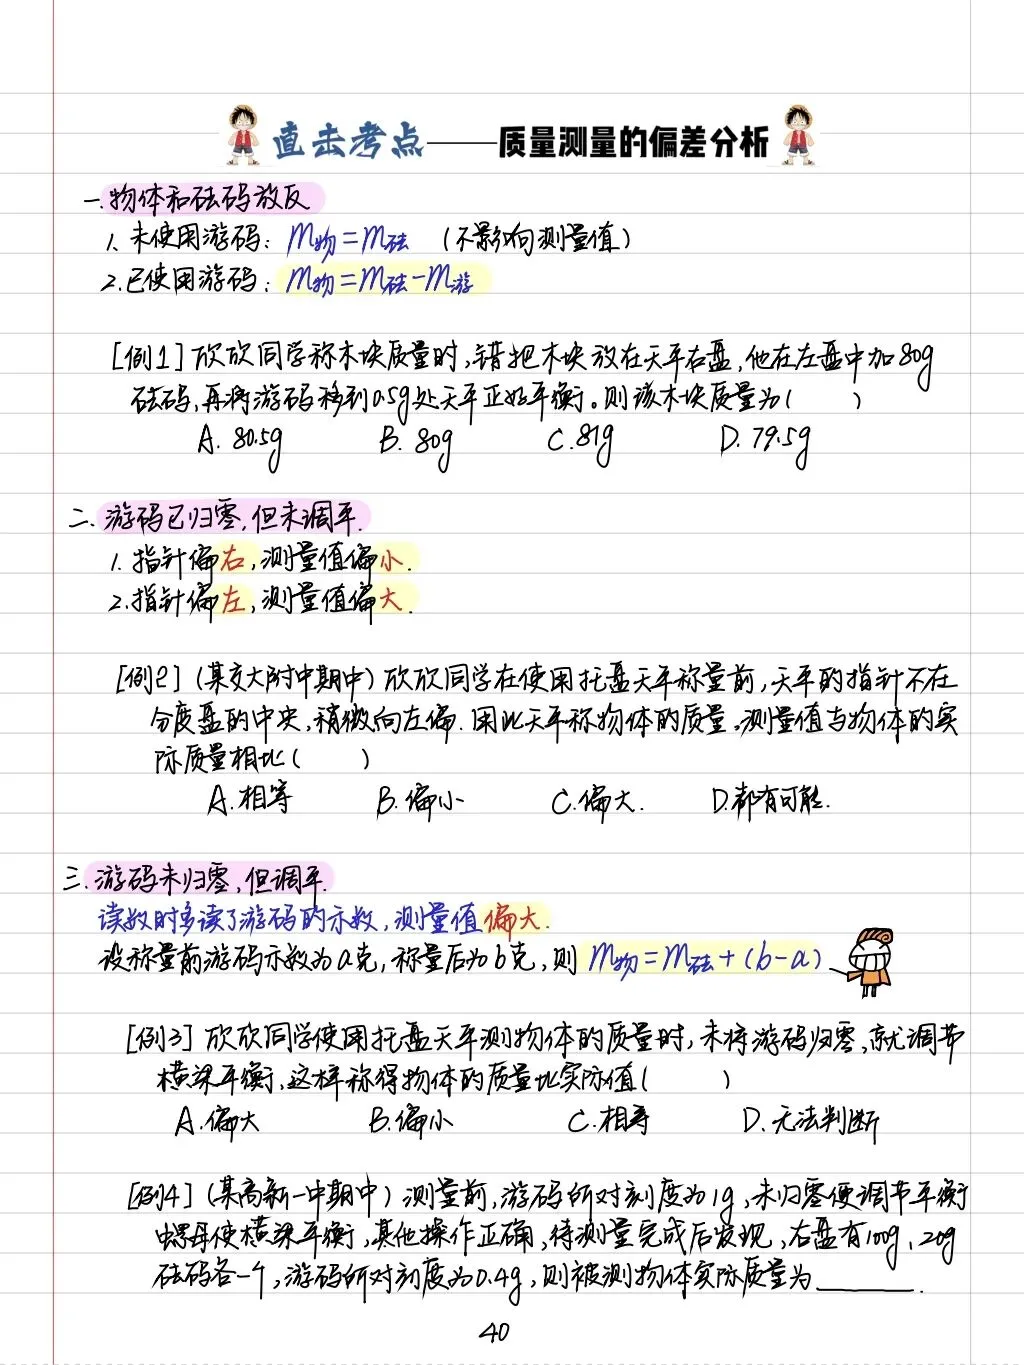 直击考点——质量测量的偏差分析
一.物体和砝码放反
1.未使用游码:m物=m砝 (不影响测量值)
2.已使用游码:m物=m砝-m游
[例1]欣欣同学称木块质量时,错把木块放在天平右盘,他在左盘中加80g
砝码,再将游码移到0.5g处天平正好平衡。则该木块质量为( )
A. 80.5g B. 80g C.81g D. 79.5g
二.游码已归零,但未调平.
1.指针偏右,测量值偏小.
2.指针偏左,测量值偏大.
[例2](某交大附中期中)欣欣同学在使用托盘天平称量前,天平的指针不在
分度盘的中央,稍微向左偏.用此天平称物体的质量。测量值与物体的实
际质量相比( )
A.相等 B.偏小 C.偏大. D.都有可能.
三.游码未归零,但调平.
读数时多读了游码的示数,测量值偏大.
设称量前游码示数为a克,称量后为b克,则m物=m砝+(b-a)
[例3]欣欣同学使用托盘天平测物体的质量时,未将游码归零,就调节
横梁平衡,这样称得物体的质量比实际值( )
A.偏大 B.偏小 C.相等 D.无法判断
[例4](某高新一中期中)测量前,游码所对刻度为1g,未归零便调节平衡
螺母使横梁平衡,其他操作正确,待测量完成后发现,右盘有100g、20g
砝码各一个,游码所对刻度为0.4g,则被测物体实际质量为________.
40